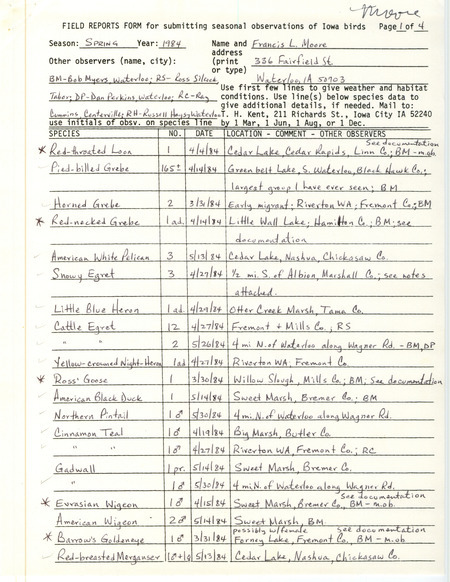 Moore
FIELD REPORTS FORM for submitting seasonal observations of Iowa birds Page 1 of 4
Season: SPRING Year: 1984 Name and Francis L. Moore
address
Other observers (name, city): (print 336 Fairfield St.
or type)
BM-Bob Myers, Waterloo; RS-Ross Silcock, Waterloo, IA 50703
Tabor; DP-Dan Perkins, Waterloo; RC-Ray Use first few lines to give weather and habitat
conditions. Use line(s) below species data to
give additional details, if needed. Mail to:
Cummins, Centerville; RH-Russell Hays, Waterloo T. H. Kent, 211 Richards St., Iowa City IA 52240
use initials of obsv. on species line by 1 Mar, 1 Jun, 1 Aug, or 1 Dec.
SPECIES NO. DATE LOCATION - COMMENT - OTHER OBSERVERS
See documentation
* Red-throated Loon 1 4/4/84 Cedar Lake, Cedar Rapids, Linn Co.; BM-m.ob.
Pied-billed Grebe 165± 4/14/84 Green belt Lake, S. Waterloo, Black Hawk Co.;
largest group I have ever seen; BM
Horned Grebe 2 3/31/84 Early migrant; Riverton WA; Fremont Co.; BM
* Red-necked Grebe 1 ad. 4/14/84 Little Wall Lake; Hamilton Co.; BM; see
documentation
American White Pelican 3 5/13/84 Cedar Lake, Nashua, Chickasaw Co.
Snowy Egret 3 4/27/84 1/2 mi. S. of Albion, Marshall Co.; see notes
attached.
Little Blue Heron 1 ad 4/29/84 Otter Creek Marsh, Tama Co.
Cattle Egret 12 4/27/84 Fremont + Mills Co.; RS
" " 2 5/26/84 4 mi N. of Waterloo along Wagner Rd. - BM, DP
Yellow-crowned Night-Heron 1ad 4/27/84 Riverton WA; Fremont Co.
* Ross' Goose 1 3/30/84 Willow Slough, Mills Co.; BM; See documentation
American Black Duck 1 5/14/84 Sweet Marsh, Bremer Co.; BM
Northern Pintail 1♂ 5/30/84 4 mi. N. of Waterloo along Wagner Rd.
Cinnamon Teal 1♂ 4/19/84 Big Marsh, Butler Co.
" " 1♂ 4/27/84 Riverton WA, Fremont Co.; RC
Gadwall 1 pr. 5/14/84 Sweet Marsh, Bremer Co.
1♂ 5/30/84 4 mi N. of Waterloo along Wagner Rd.
See documentation
* Eurasian Wigeon 1♂ 4/15/84 Sweet Marsh, Bremer Co., BM-m.ob.
American Wigeon 2♂ 5/14/84 Sweet Marsh, BM
possibly w/female See documentation
* Barrow's Goldeneye 1♂ 3/31/84 Forney Lake, Fremont Co., BM-m.ob.
Red-breasted Merganser 1♂+1♀ 5/13/84 Cedar Lake, Nashua, Chickasaw Co.